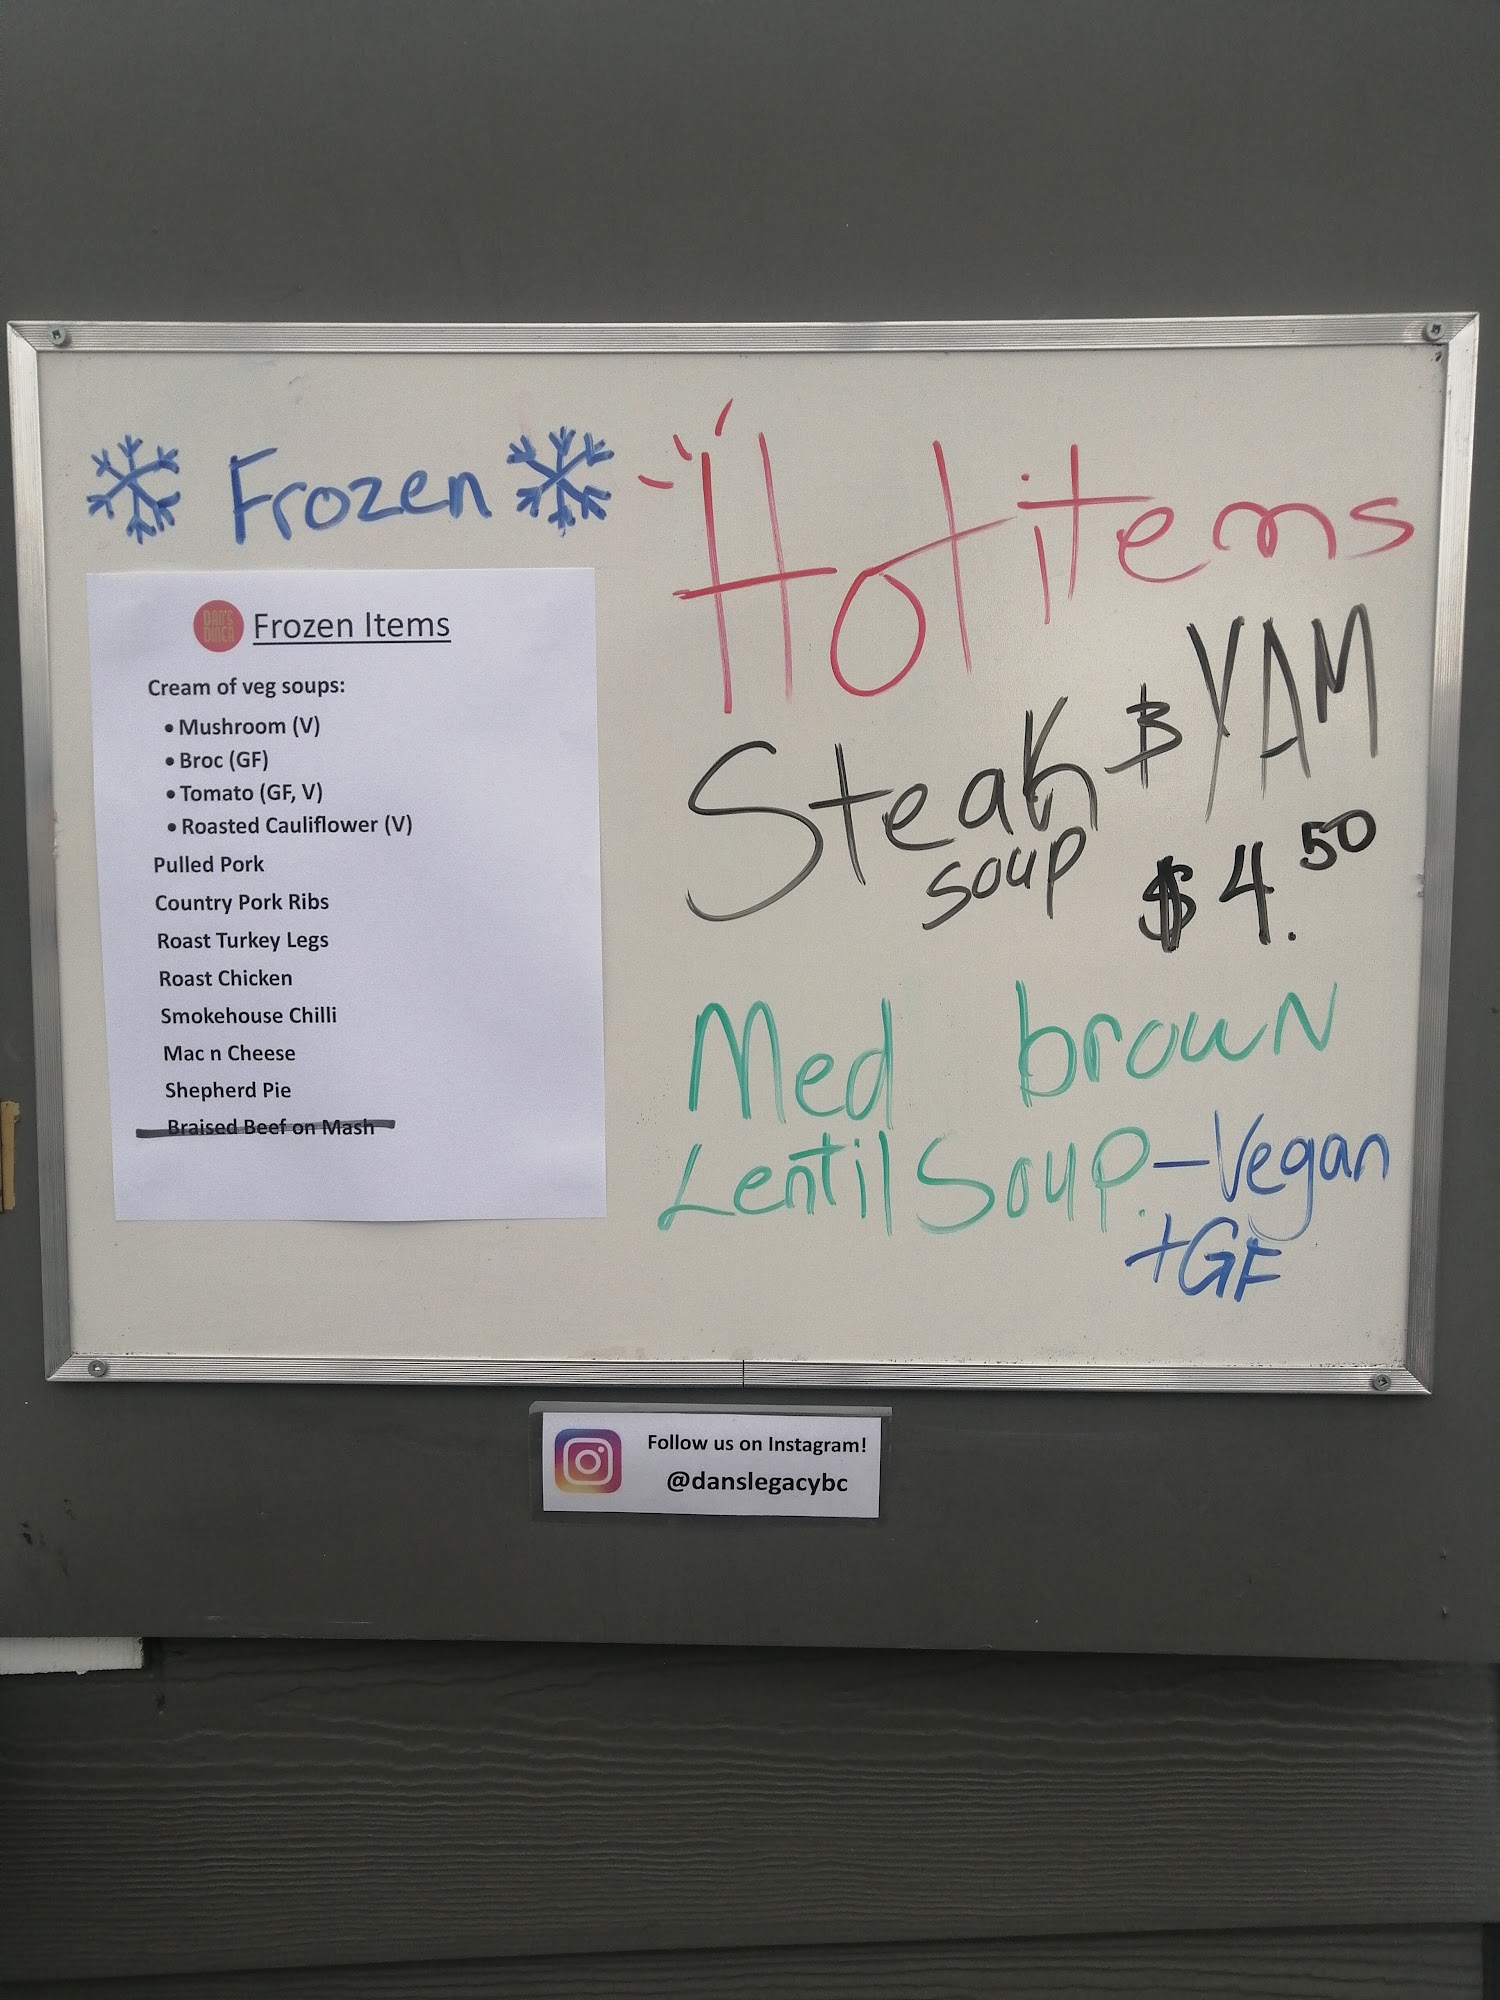 Frozen
DAN'S
DINER
Frozen Items
Cream of veg soups:
• Mushroom (V)
• Broc (GF)
• Tomato (GF, V)
• Roasted Cauliflower (V)
Pulled Pork
Country Pork Ribs
Roast Turkey Legs
Roast Chicken
Smokehouse Chilli
Mac n Cheese
Shepherd Pie
Braised Beef on Mash
Hot items
Steak & YAM
soup $4.50
Med brown
Lentil Soup. - Vegan
+GF
Follow us on Instagram!
@danslegacybc